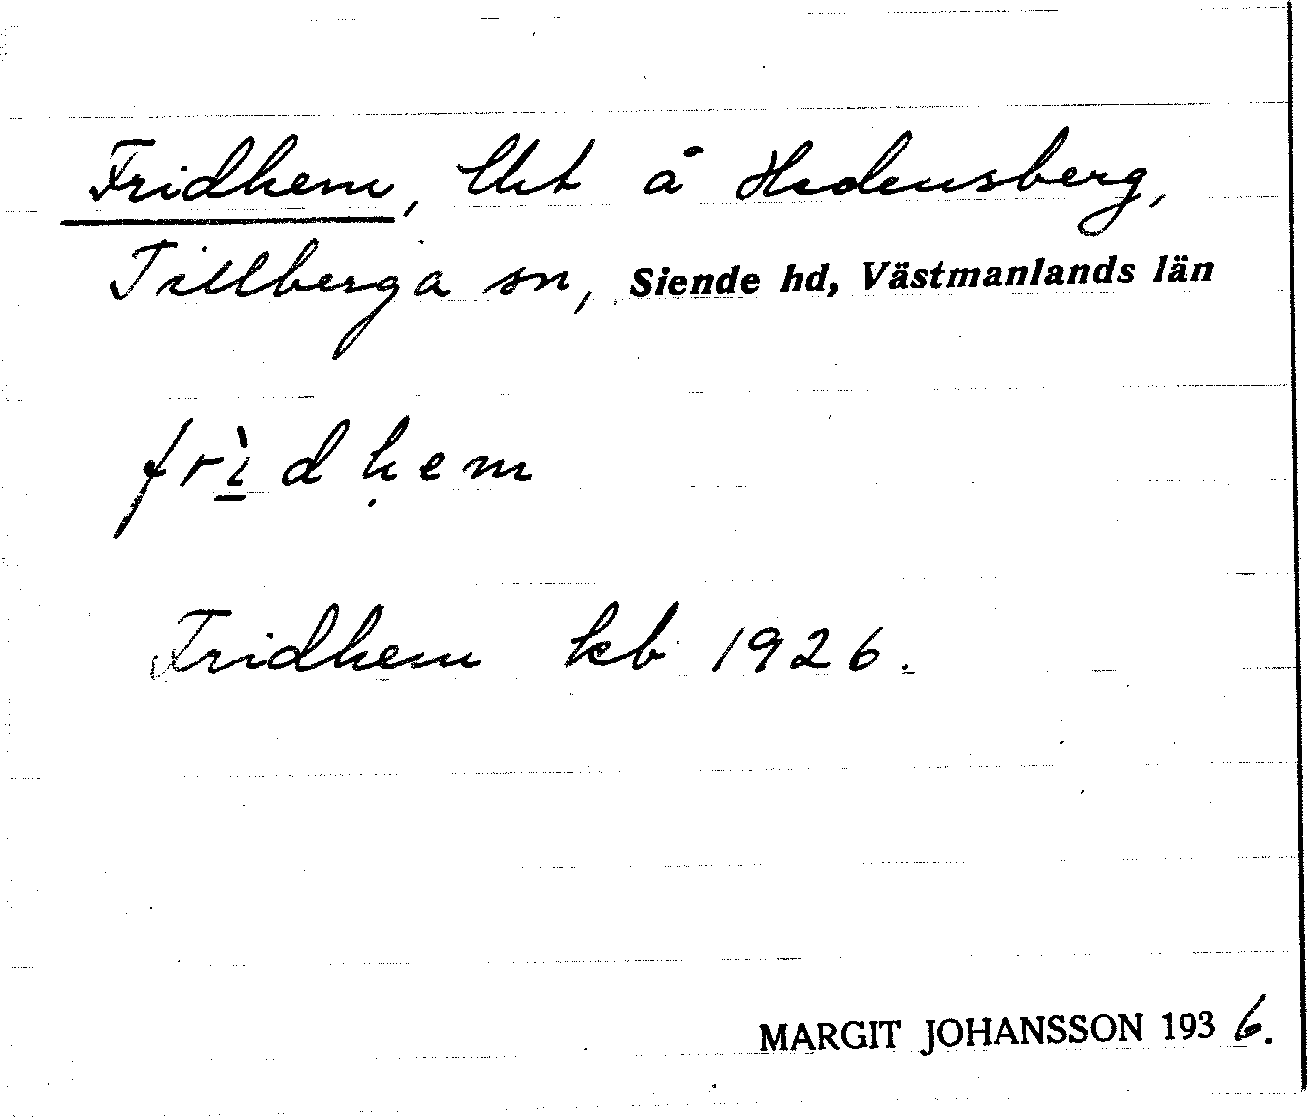 Fridhem, lht å Hedensberg,
Tillberga sn, Siende hd, Västmanlands län
frì̲dḥem
Fridhem kb 1926.
MARGIT JOHANSSON 1936.